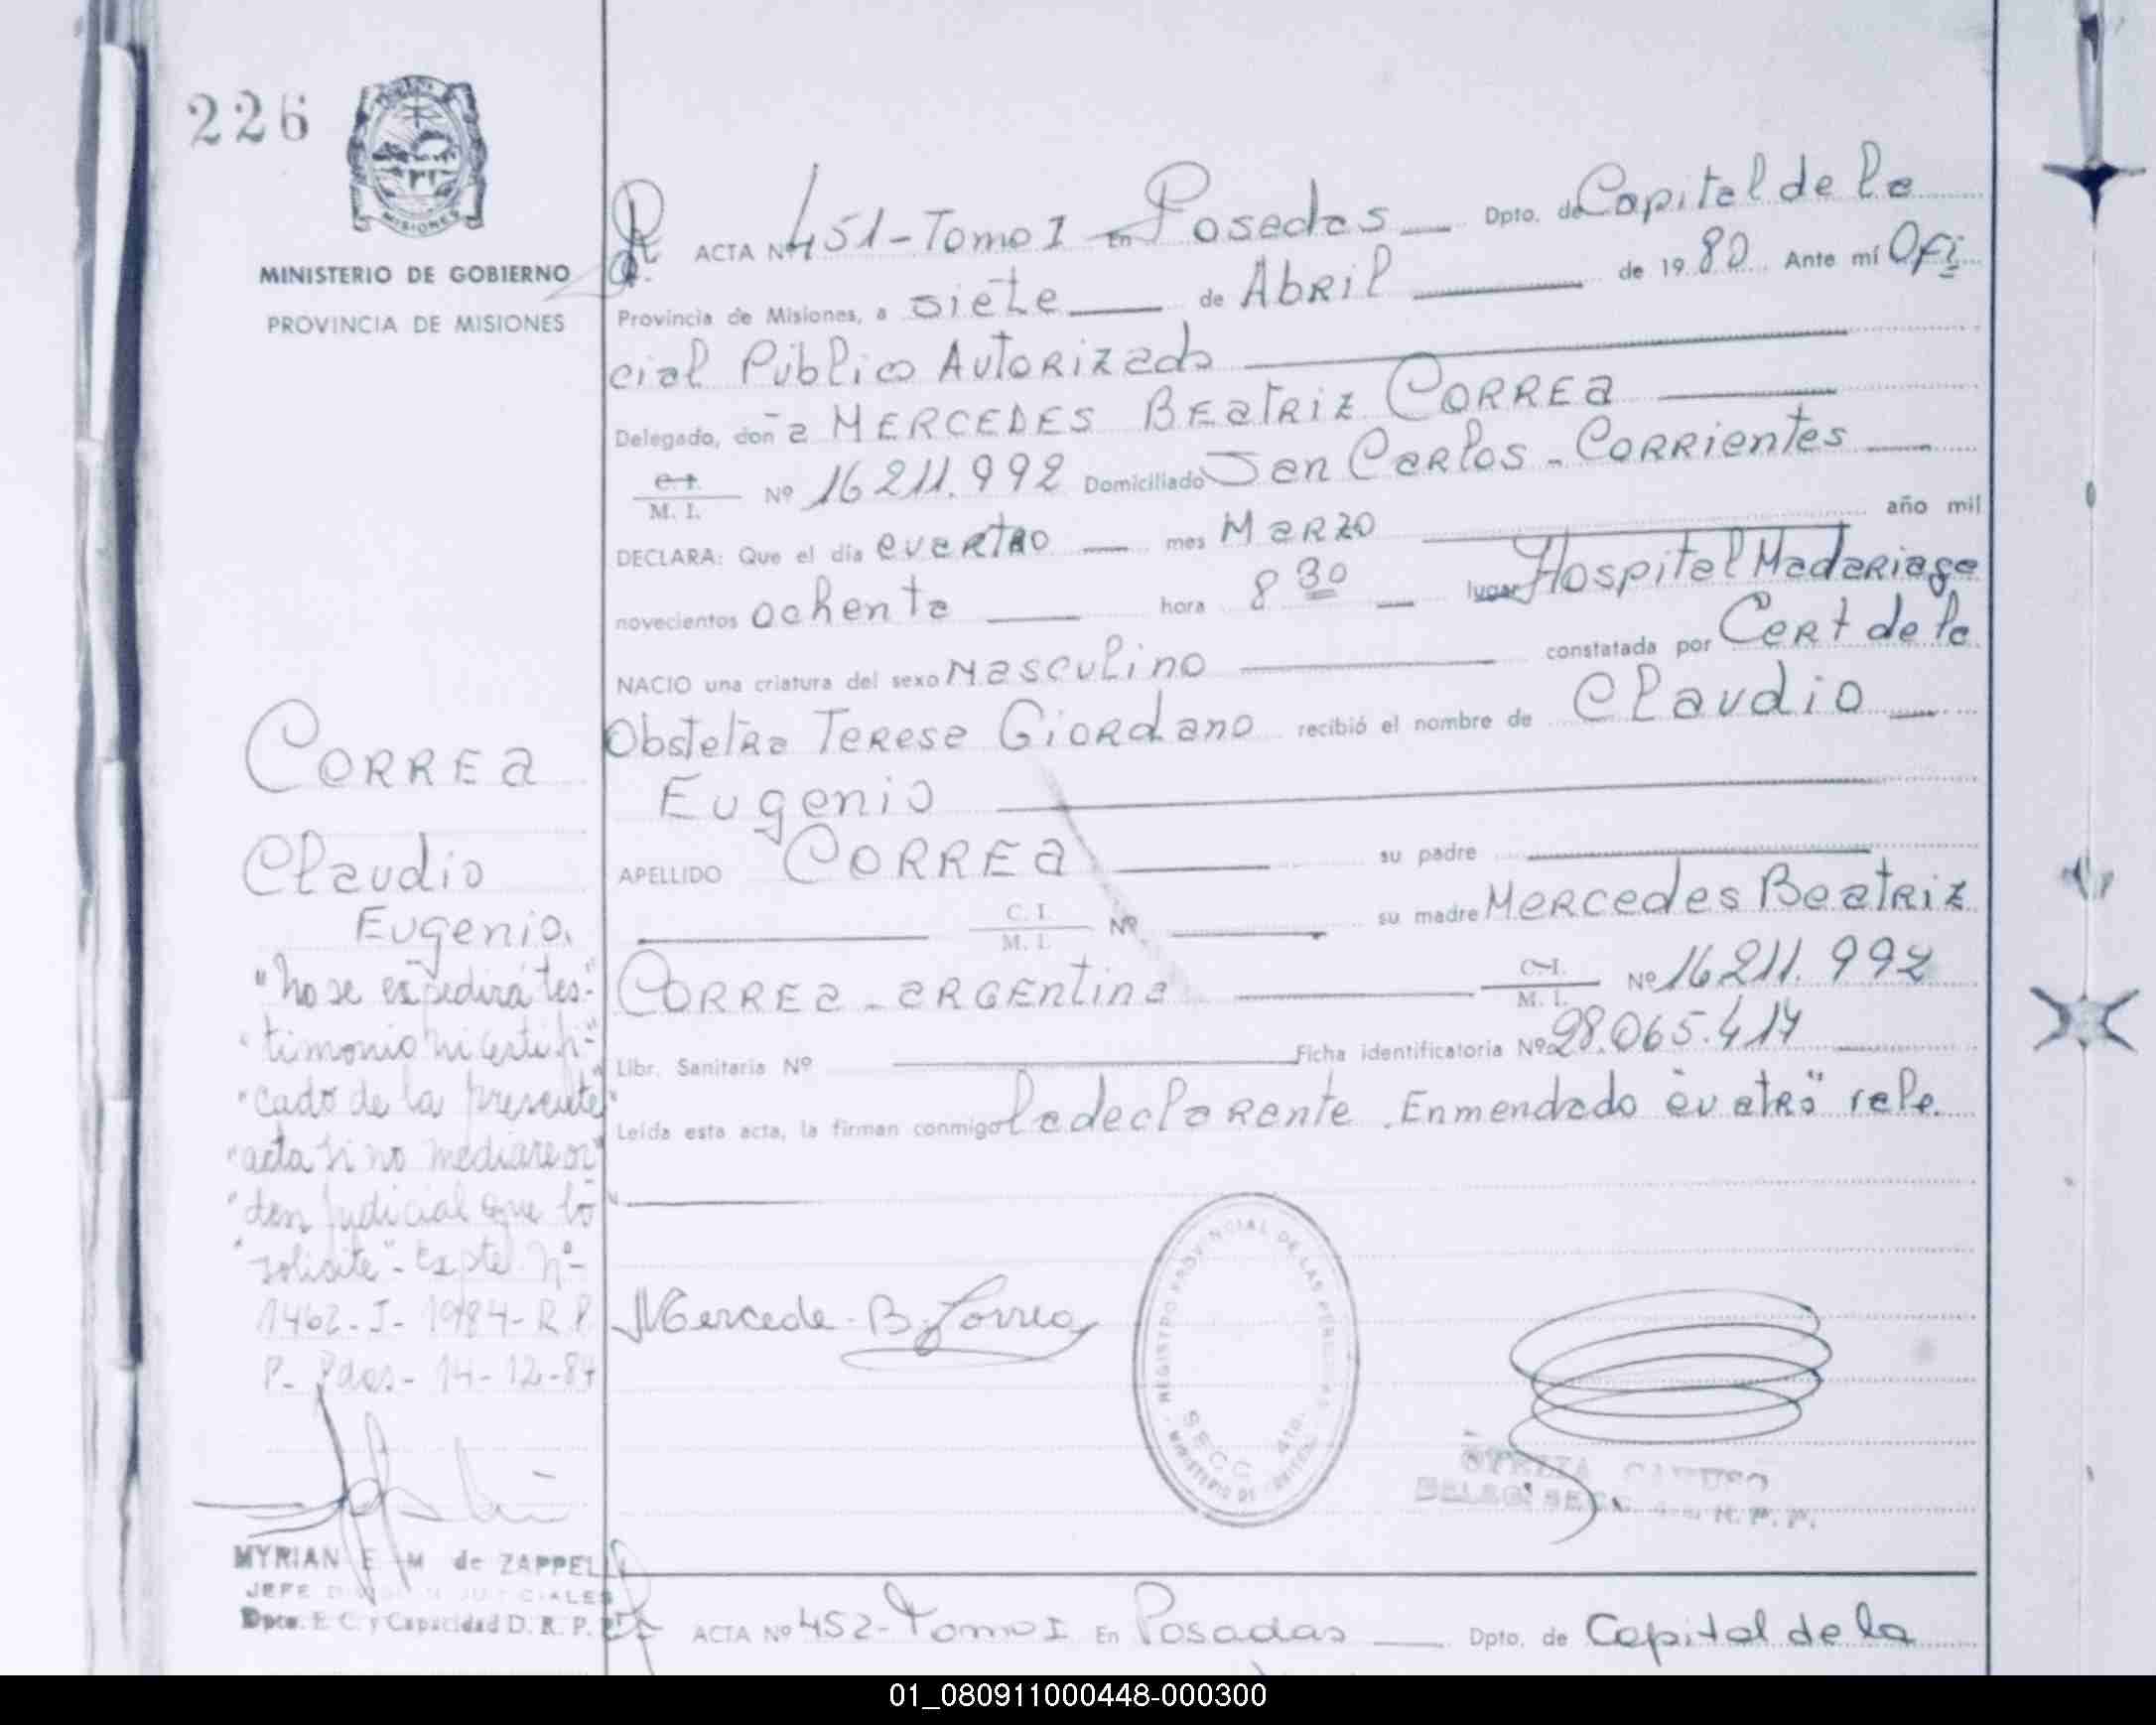 226
MISIONES
MINISTERIO DE GOBIERNO
PROVINCIA DE MISIONES
ACTA Nº 451-Tomo I En Posadas Dpto. de Capital de la
Provincia de Misiones, a siete de Abril de 1980. Ante mí Ofi
cial Público Autorizado
Delegado, doña MERCEDES BEatRiz CORREa
C.I. M. I. Nº 16211.992 Domiciliado San Carlos - Corrientes
DECLARA: Que el día cuartro mes Marzo año mil
novecientos ochenta hora 8 30 lugar Hospital Madariaga
NACIO una criatura del sexo Masculino constatada por Cert de la
Obstetra Teresa Giordano recibió el nombre de Claudio
Eugenio
APELLIDO CORREa su padre
C. I. M. I. Nº su madre Mercedes Beatriz
CORREa - argentina C.I. M. I. Nº 16211.992
Libr. Sanitaria Nº Ficha identificatoria Nº 28.065.414
Leída esta acta, la firman conmigo la declarante. Enmendado "cuatro" vale.
CORREa
Claudio
Eugenio.
"No se expedirá tes-"
"timonio ni certifi-"
"cado de la presente"
"acta si no mediare or"
"den judicial que lo"
"solicite" - Expte. Nº
1462-J-1984-R.P.
P- Pdas- 14-12-84
Mercede B. Correa
REGISTRO PROVINCIAL DE LAS PERSONAS
SECC 4ta.
MINISTERIO DE
DELEG SECC R. P. P.
MYRIAN E. M de ZAPPELLI
JEFE JUDICIALES
Dpto. E. C. y Capacidad D. R. P. P.
ACTA Nº 452-Tomo I En Posadas Dpto. de Capital de la
01_080911000448-000300